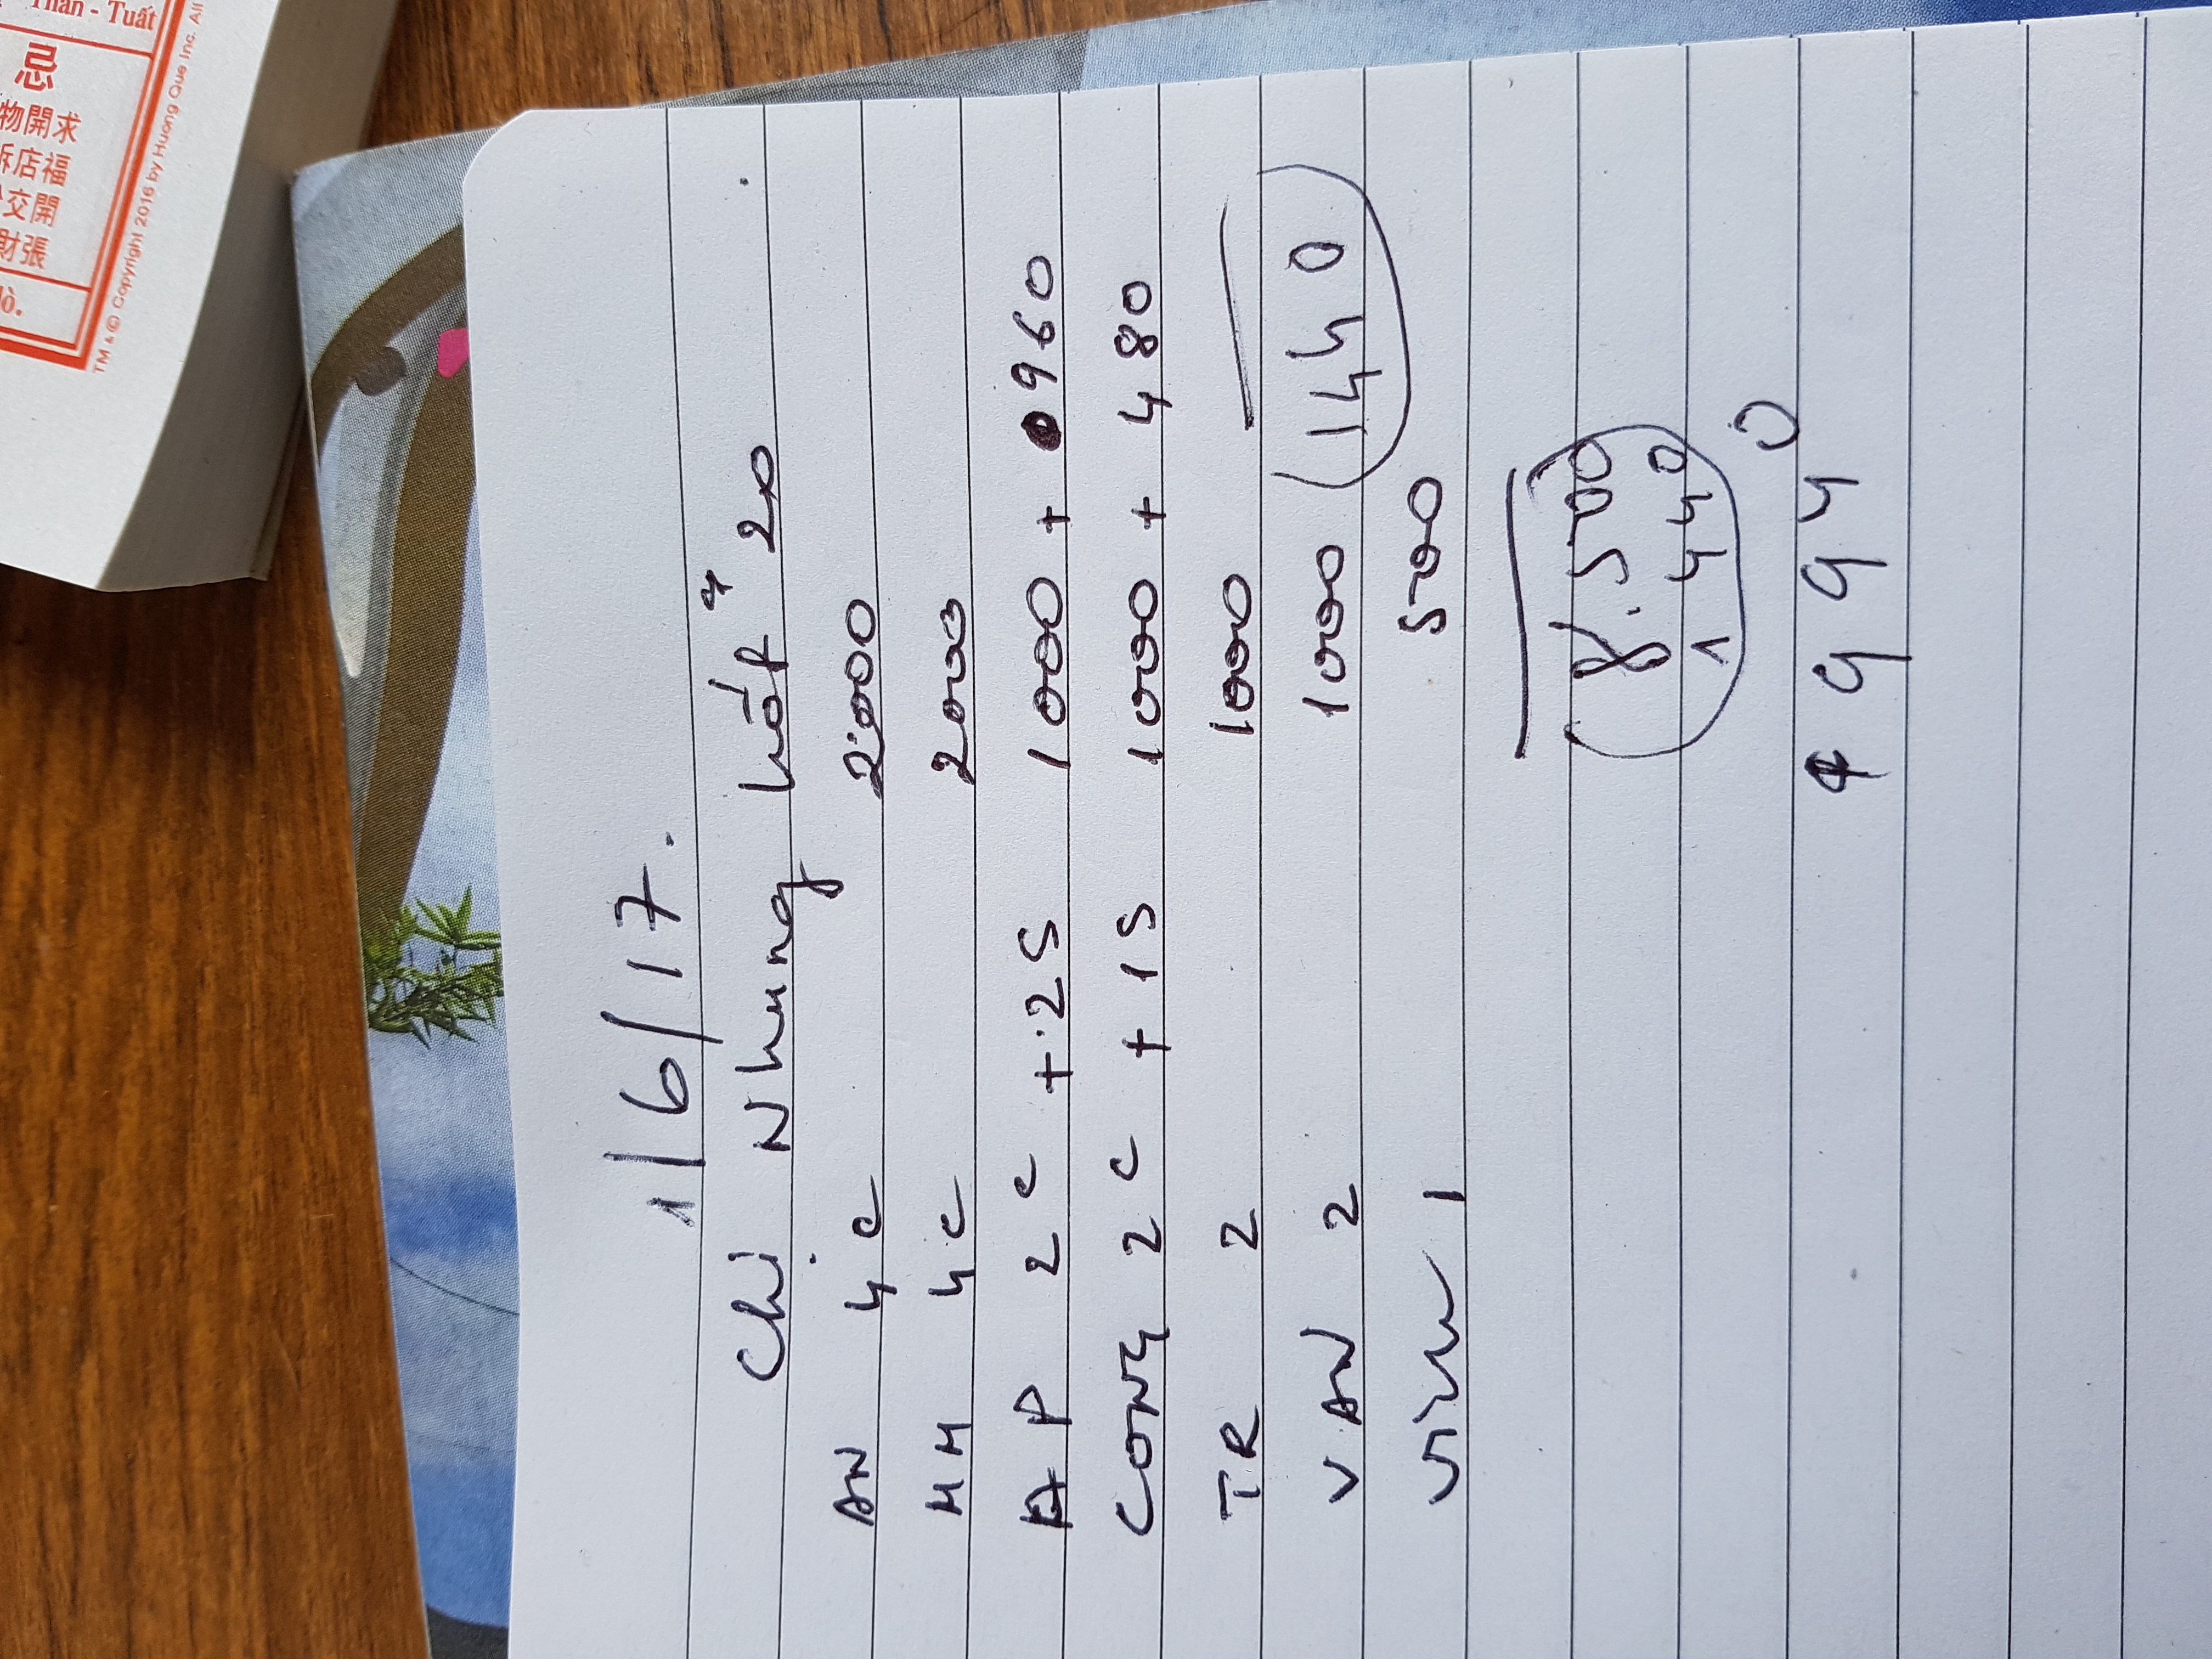 1/6/17.
Chị Nhung hốt 4 20
AN 4C 2000
HH 4C 2000
AP 2C + 2S 1000 + 960
CONG 2C + 1S 1000 + 480
TR 2 1000
V AN 2 1000 1440
500
8.500
1440
9940
Thân - Tuất
忌
物開求
訴店福
交開
財張
TM & © Copyright 2016 by Huong Que Inc. All